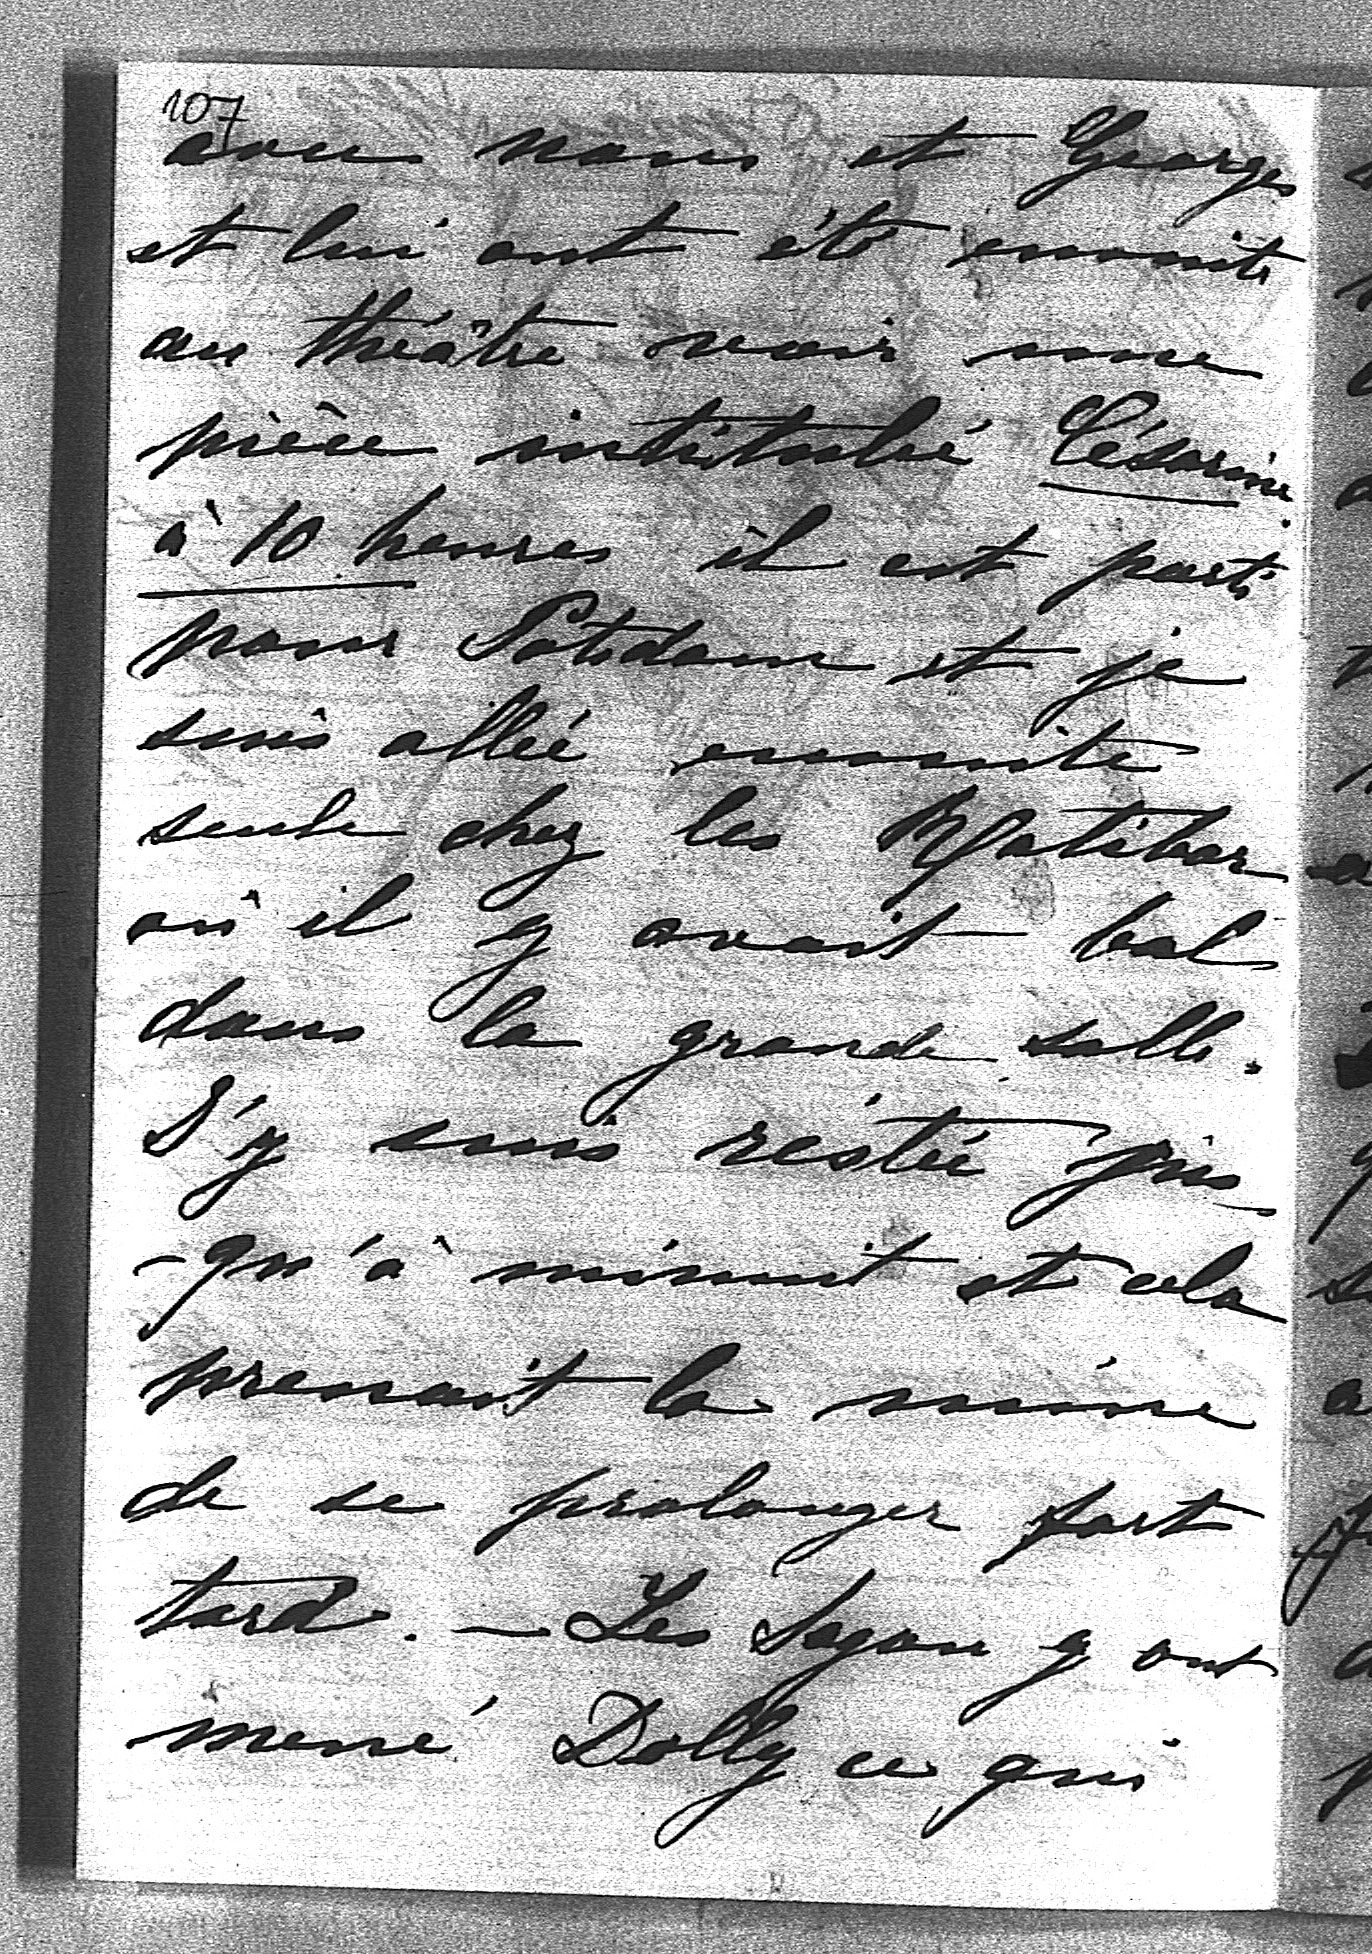 107
avec nous et Georges
et lui ont été ensuite
au théâtre voir une
pièce intitulée Césarine.
à 10 heures il est parti
pour Potsdam et je
suis allée ensuite
seule chez les Ratibor
où il y avait bal
dans la grande salle.
J'y suis restée jus
-qu'à minuit et cela
prenait la mine
de se prolonger fort
tard. — Les Sagan y ont
mené Dolly ce qui